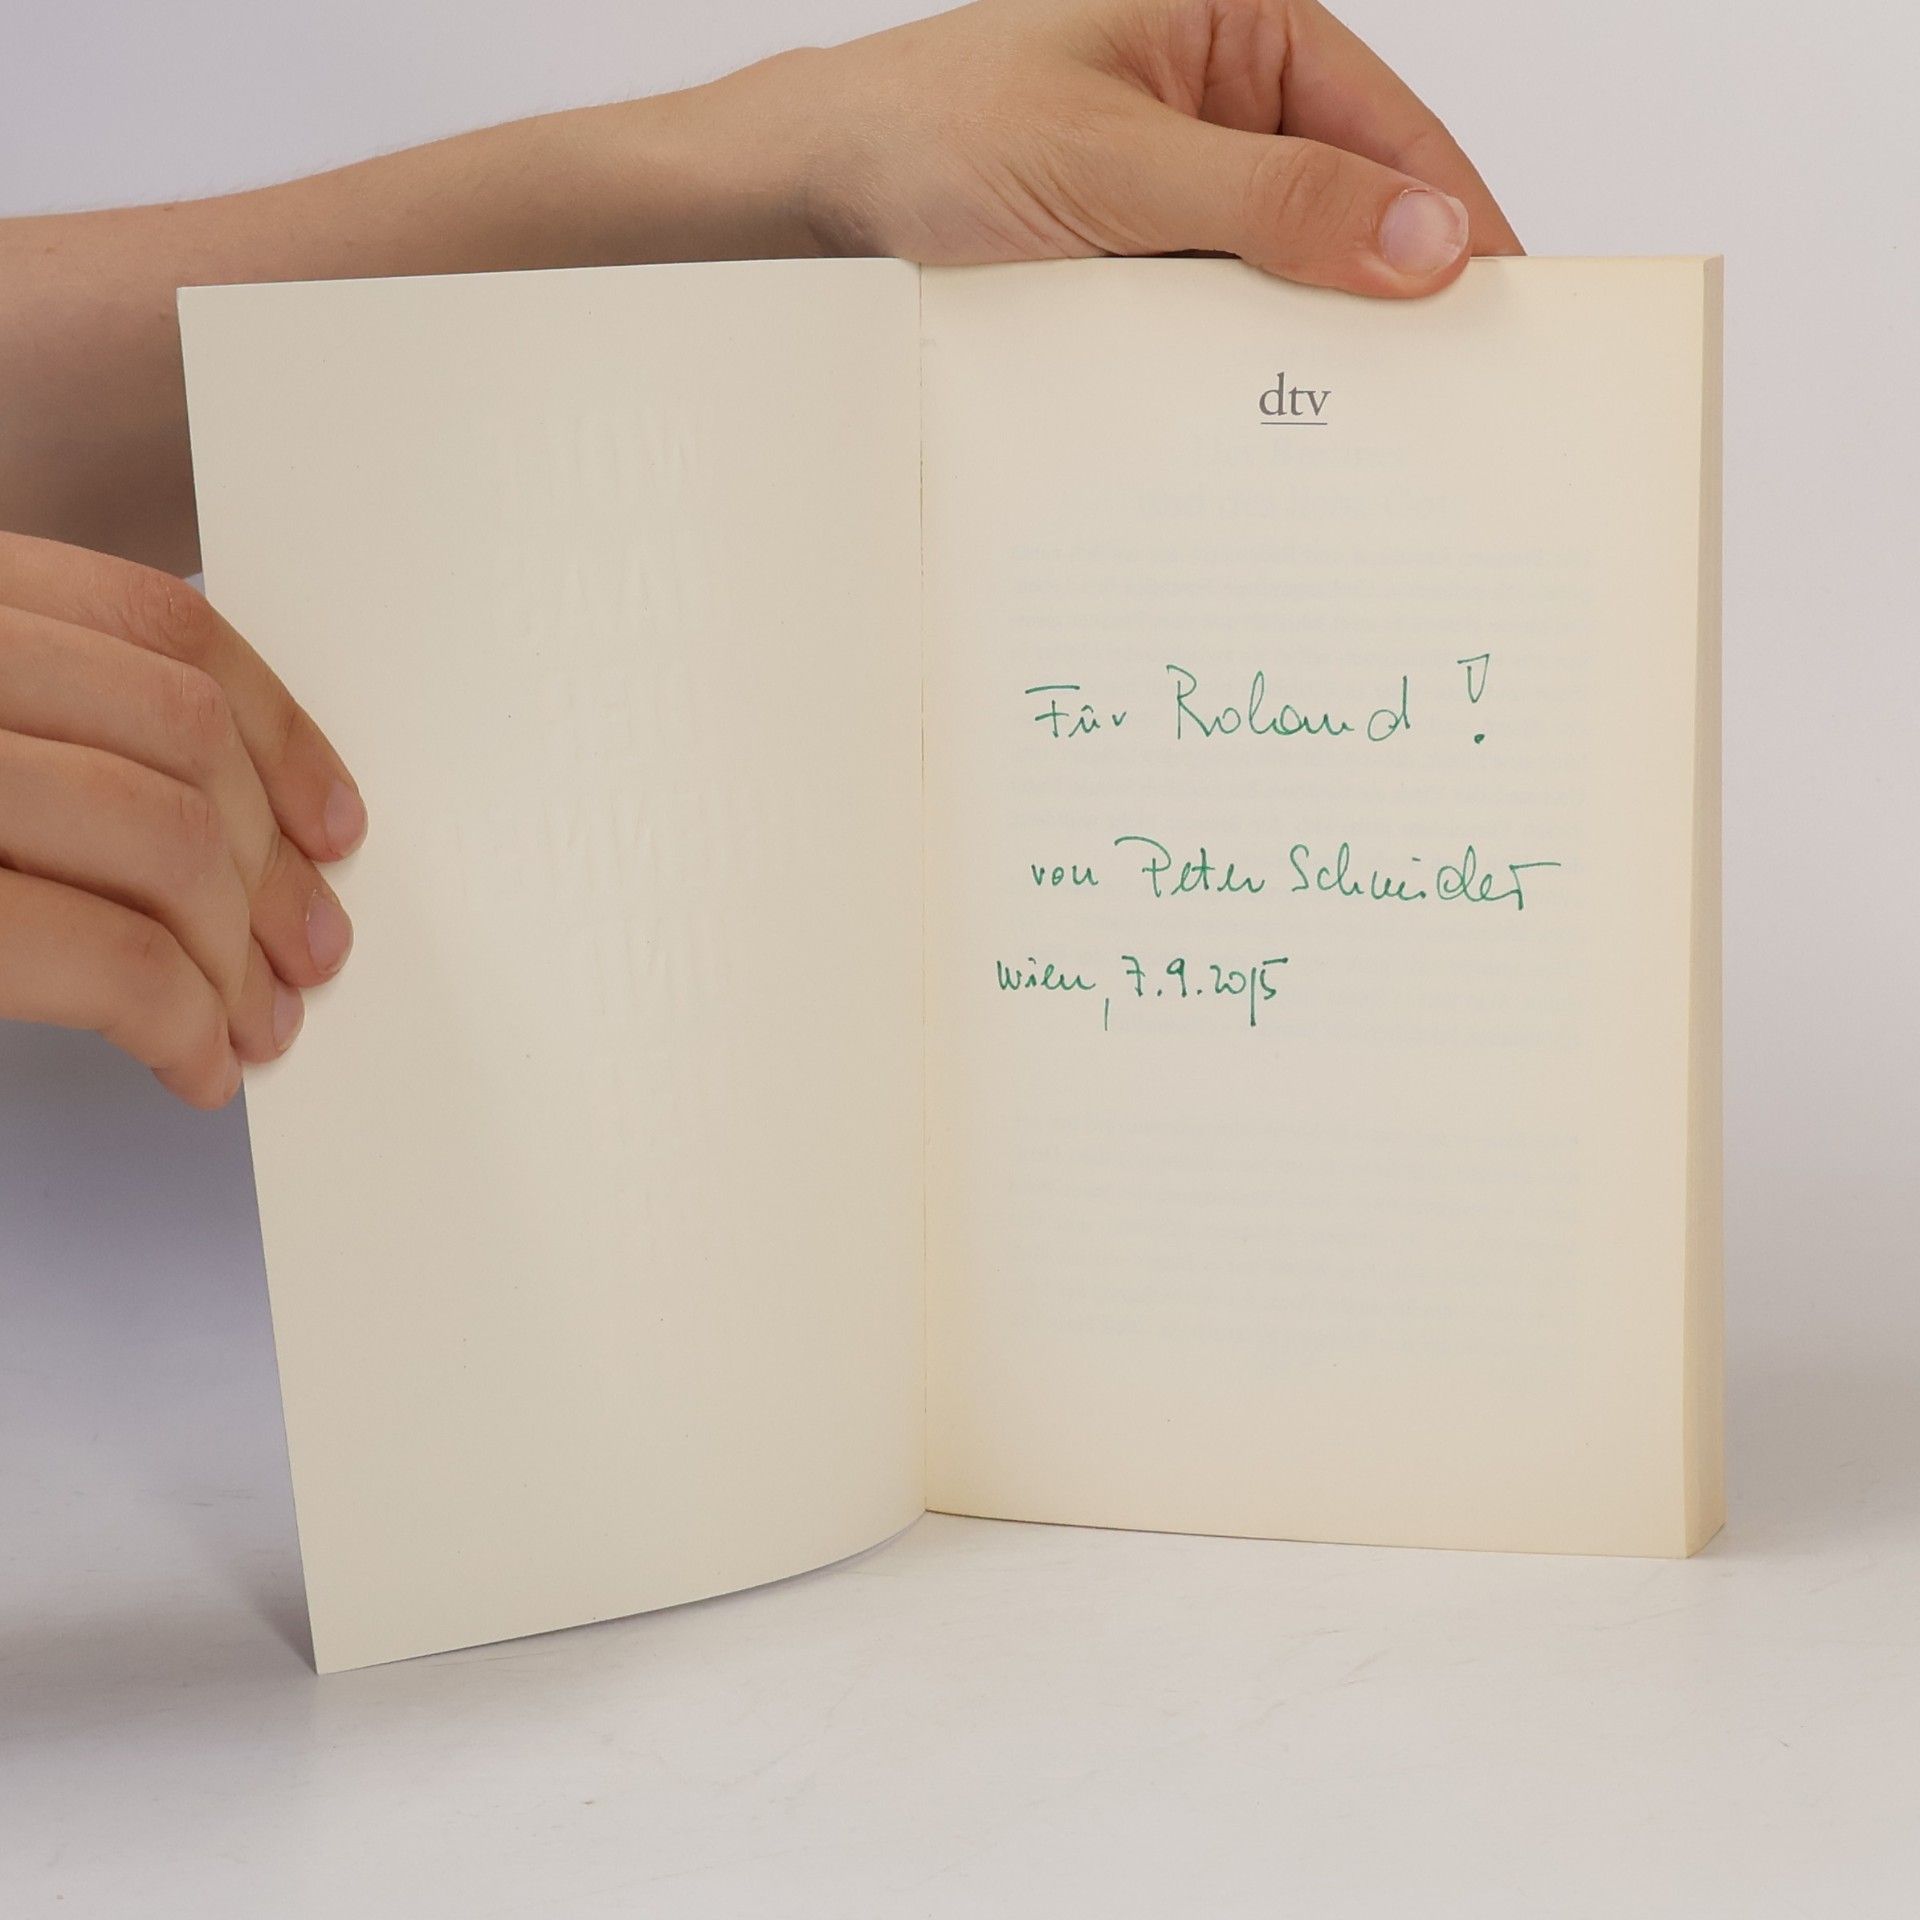 dtv
Für Roland!
von Peter Schneider
Wien, 7.9.2015